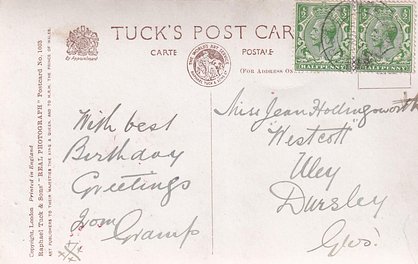 TUCK'S POST CAR
CARTE POSTALE
By Appointment
(FOR ADDRESS ON
HALFPENNY
Copyright, London Printed in England.
Raphael Tuck & Sons' "REAL PHOTOGRAPH" Postcard No. 1603
ART PUBLISHERS TO THEIR MAJESTIES THE KING & QUEEN, AND TO H.R.H. THE PRINCE OF WALES.
With best
Birthday
Greetings
from
Gramp
Miss Jean Hollingsworth
Westcott
Uley
Dursley
Glos.